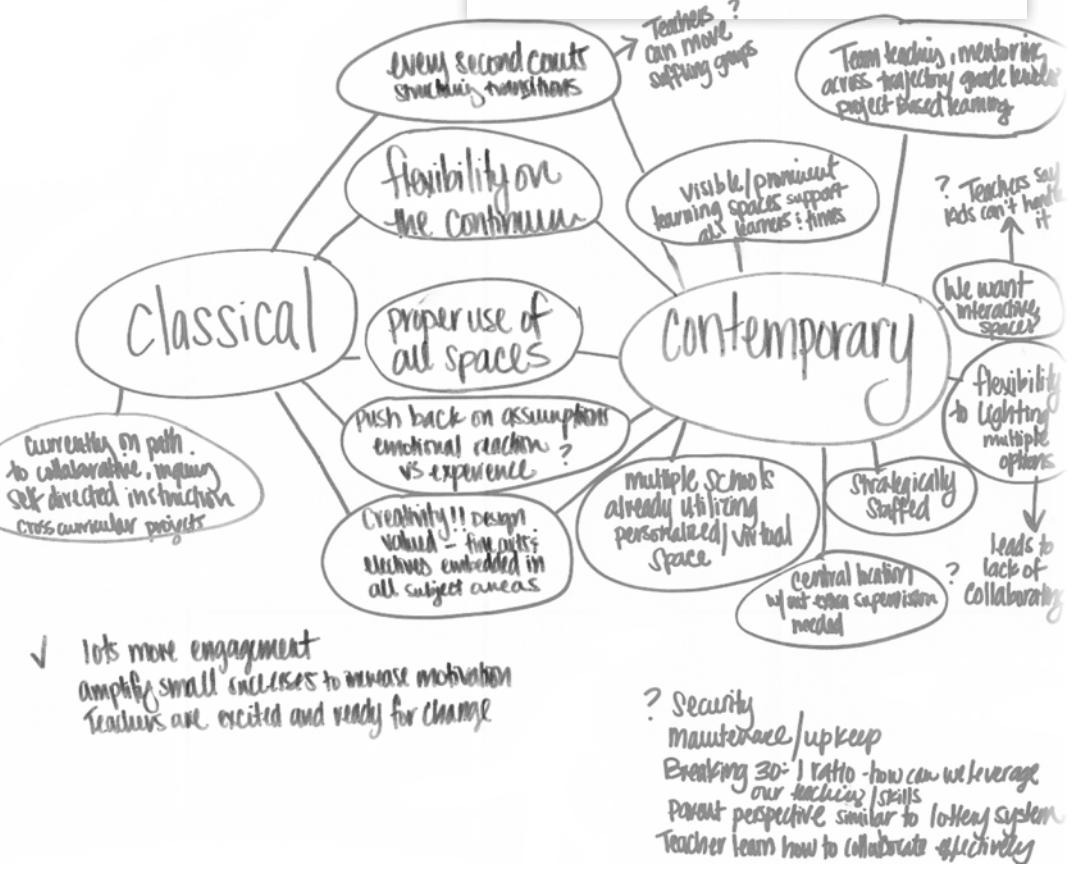 every second counts
structuring transitions
Teachers ?
can move
suffling groups
Team teaching, mentoring
across trajectory grade levels
project based learning
flexibility on
the continuum
visible/prominent
learning spaces support
all learners & times
? Teachers say
kids can't handle
it
We want
interactive
spaces
classical
proper use of
all spaces
contemporary
flexibility
to lighting
multiple
options
leads to
lack of
collaborating
currently on path
to collaborative, inquiry
self directed instruction
cross curricular projects
push back on assumptions
emotional reaction ?
vs experience
Creativity!! Design
valued - fine arts &
electives embedded in
all subject areas
multiple schools
already utilizing
personalized/virtual
space
strategically
staffed
central location ?
w/out extra supervision
needed
✓ lots more engagement
amplify small successes to increase motivation
Teachers are excited and ready for change
? Security
maintenance/upkeep
Breaking 30:1 ratio - how can we leverage
our teaching/skills
Parent perspective similar to lottery system
Teacher learn how to collaborate effectively